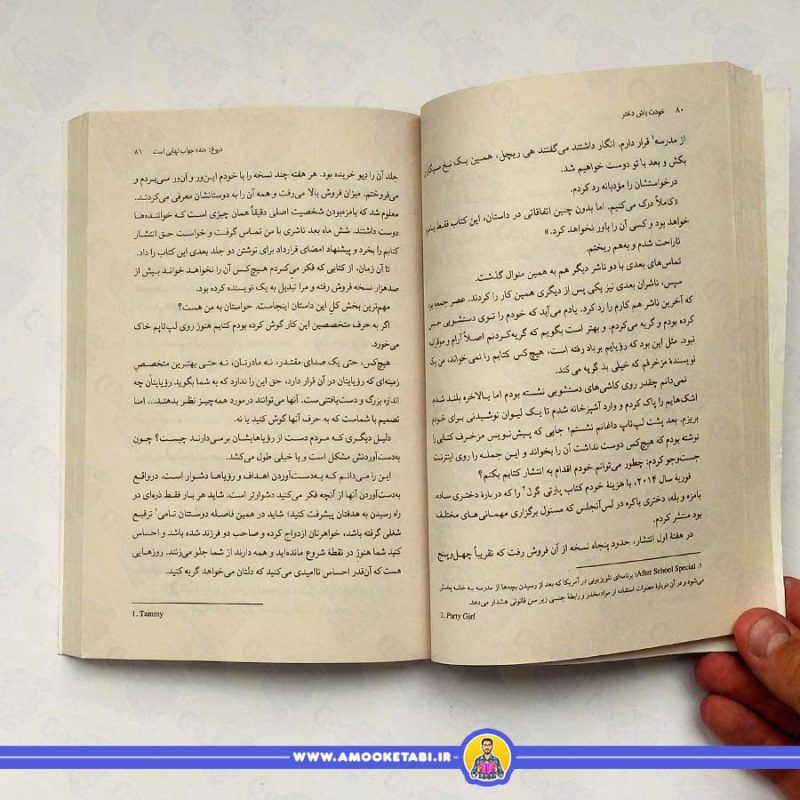 ۸۰
خودت باش دختر
از مدرسه¹ قرار دارم. انگار داشتند می‌گفتند هی ریچل، همین یک نخ سیگار
بکش و بعد با تو دوست خواهیم شد.
درخواستشان را مؤدبانه رد کردم.
«کاملاً درک می‌کنیم. اما بدون چنین اتفاقاتی در داستان، این کتاب فقط
خواهد بود و کسی آن را باور نخواهد کرد.»
ناراحت شدم و به‌هم ریختم.
تماس‌های بعدی با دو ناشر دیگر هم به همین منوال گذشت.
سپس، ناشران بعدی نیز یکی پس از دیگری همین کار را کردند. عصر جمعه بود
که آخرین ناشر هم کارم را رد کرد. یادم می‌آید که خودم را توی دستشویی حبس
کرده بودم و گریه می‌کردم. و بهتر است بگویم که گریه‌کردنم اصلاً آرام و موقرانه
نبود. مثل این بود که رؤیایم برباد رفته است، هیچ‌کس کتابم را نمی‌خواند، من یک
نویسندهٔ مزخرفم که خیلی بد گریه می‌کند.
نمی‌دانم چقدر روی کاشی‌های دستشویی نشسته بودم اما بالاخره بلند شدم
اشک‌هایم را پاک کردم و وارد آشپزخانه شدم تا یک لیوان نوشیدنی برای خودم
بریزم. بعد پشت لپ‌تاپ داغانم نشستم؛ جایی که پیش‌نویس مزخرف کتابی را
نوشته بودم که هیچ‌کس دوست نداشت آن را بخواند و این جمله را روی اینترنت
جست‌وجو کردم: چطور می‌توانم خودم اقدام به انتشار کتابم بکنم؟
فوریهٔ سال ۲۰۱۴، با هزینهٔ خودم کتاب پارتی گرل² را که دربارهٔ دختری ساده،
بامزه و بله، دختری باکره در لس‌آنجلس که مسئول برگزاری مهمانی‌های مختلف
بود منتشر کردم.
در هفتهٔ اول انتشار، حدود پنجاه نسخه از آن فروش رفت که تقریباً چهل‌وپنج
۱. After School Special؛ برنامه‌ای تلویزیونی در آمریکا که بعد از رسیدن بچه‌ها از مدرسه به خانه پخش
می‌شود و در آن دربارهٔ مضرات استفاده از مواد مخدر و رابطهٔ جنسی زیر سن قانونی هشدار می‌دهد.
2. Party Girl
دروغ: «نه» جواب نهایی است
۸۱
جلد آن را دیو خریده بود. هر هفته چند نسخه را با خودم این‌ور و آن‌ور می‌بردم و
می‌فروختم. میزان فروش بالا می‌رفت و همه آن را به دوستانشان معرفی می‌کردند.
معلوم شد که بامزه‌بودن شخصیت اصلی دقیقاً همان چیزی است که خواننده‌ها
دوست داشتند. شش ماه بعد ناشری با من تماس گرفت و خواست حق انتشار
کتابم را بخرد و پیشنهاد امضای قرارداد برای نوشتن دو جلد بعدی این کتاب را داد.
تا آن زمان، از کتابی که فکر می‌کردم هیچ‌کس آن را نخواهد خواند بیش از
صدهزار نسخه فروش رفته و مرا تبدیل به یک نویسنده کرده بود.
مهم‌ترین بخش کل این داستان اینجاست. حواستان به من هست؟
اگر به حرف متخصصین این کار گوش کرده بودم کتابم هنوز روی لپ‌تاپم خاک
می‌خورد.
هیچ‌کس، حتی یک صدای مقتدر، نه مادرتان، نه حتی بهترین متخصص
زمینه‌ای که رؤیایتان در آن قرار دارد، حق این را ندارد که به شما بگوید رؤیایتان چه
اندازه بزرگ و دست‌یافتنی‌ست. آنها می‌توانند در مورد همه‌چیز نظر بدهند... اما
تصمیم با شماست که به حرف آنها گوش کنید یا نه.
دلیل دیگری که مردم دست از رؤیاهایشان برمی‌دارند چیست؟ چون
به‌دست‌آوردنش مشکل است و یا خیلی طول می‌کشد.
این را می‌دانم که به‌دست‌آوردن اهداف و رؤیاها دشوار است. درواقع
به‌دست‌آوردن آنها از آنچه فکر می‌کنید دشوارتر است. شاید هر بار فقط ذره‌ای در
راه رسیدن به هدفتان پیشرفت کنید؛ شاید در همین فاصله دوستتان تامی¹ ترفیع
شغلی گرفته باشد، خواهرتان ازدواج کرده و صاحب دو فرزند شده باشد و احساس
کنید شما هنوز در نقطهٔ شروع مانده‌اید و همه دارند از شما جلو می‌زنند. روزهایی
هست که آن‌قدر احساس ناامیدی می‌کنید که دلتان می‌خواهد گریه کنید.
1. Tammy
WWW.AMOOKETABI.IR